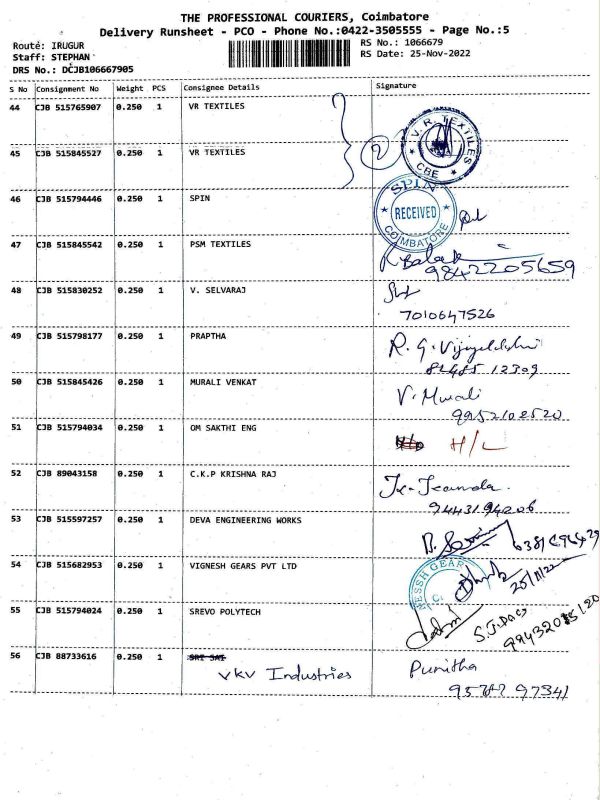 THE PROFESSIONAL COURIERS, Coimbatore
Delivery Runsheet - PCO - Phone No.:0422-3505555 - Page No.:5
Route: IRUGUR
RS No.: 1066679
Staff: STEPHAN
RS Date: 25-Nov-2022
DRS No.: DCJB106667905
S No Consignment No Weight PCS Consignee Details Signature
44 CJB 515765907 0.250 1 VR TEXTILES
2 V. R. TEXTILES CBE
45 CJB 515845527 0.250 1 VR TEXTILES
46 CJB 515794446 0.250 1 SPIN
SPIN RECEIVED COIMBATORE
47 CJB 515845542 0.250 1 PSM TEXTILES
9842205659
48 CJB 515830252 0.250 1 V. SELVARAJ
7010647526
49 CJB 515798177 0.250 1 PRAPTHA
R. G.
50 CJB 515845426 0.250 1 MURALI VENKAT
V. Murali
9952102520
51 CJB 515794034 0.250 1 OM SAKTHI ENG
H/L
52 CJB 89043158 0.250 1 C.K.P KRISHNA RAJ
9443194206
53 CJB 515597257 0.250 1 DEVA ENGINEERING WORKS
54 CJB 515682953 0.250 1 VIGNESH GEARS PVT LTD
25/11/22
55 CJB 515794024 0.250 1 SREVO POLYTECH
56 CJB 88733616 0.250 1 SRI SAI
VKV Industries
Punitha